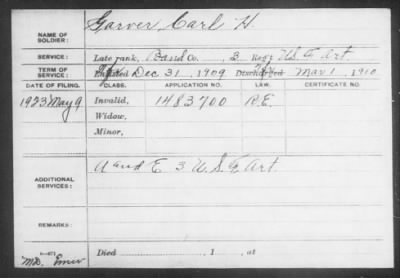 Garver, Carl H.
NAME OF SOLDIER:
SERVICE: Late rank, Band Co. , 3 Reg't U.S. F Art.
TERM OF SERVICE: Enlisted Dec 31, 1909 Discharged Mar 1, 1910
DATE OF FILING. CLASS. APPLICATION NO. LAW. CERTIFICATE NO.
1923 May 9 Invalid, 1483700 R.E.
Widow,
Minor,
ADDITIONAL SERVICES: A and E 3 U.S. F Art.
REMARKS:
Died , 1 , at